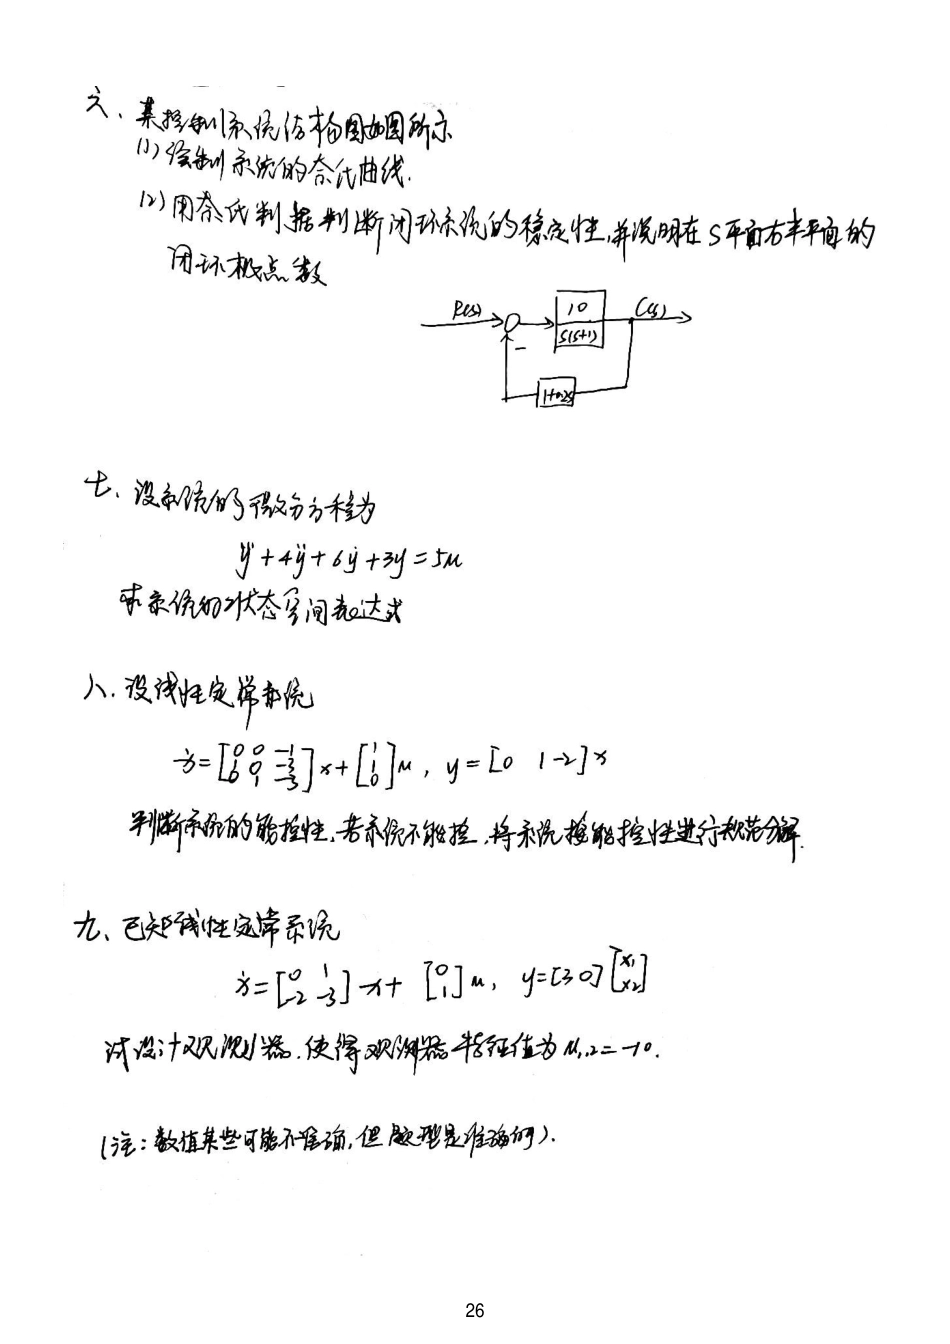 六、某控制系统结构图如图所示
(1)绘制系统的奈氏曲线.
(2)用奈氏判据判断闭环系统的稳定性,并说明在S平面右半平面的
闭环极点数
R(s) 10 C(s)
S(S+1)
-
1+0.2s
七、设系统的微分方程为
y⃛+4ÿ+6ẏ+3y=5u
求系统的状态空间表达式
八.设线性定常系统
ẋ=[0 0 -1; 1 0 -3; 0 1 -3]x+[1; 1; 0]u, y=[0 1 -2]x
判断系统的能控性.若系统不能控,将系统按能控性进行规范分解.
九、已知线性定常系统
ẋ=[0 1; -2 -3]x+[0; 1]u, y=[3 0][x1; x2]
试设计观测器.使得观测器特征值为μ1,2=-10.
(注:数值某些可能不准确,但题型是准确的).
26